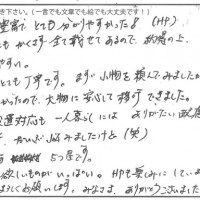 き下さい。(一言でも文章でも絵でも大丈夫です！)
豊富で とても 分かりやすかった♪ (HP)
も かくさず 全て載せてあるので、納得の上、
やすい。
とても 丁寧です。まず 小物を 頼んでみましたが
かったので、大物に 安心して移行できました。
対応も 一人暮らしには ありがたい
悩みましたけど (笑)
5つ星です。
欲しいものがいっぱい。HPを楽しみにしてい
ろしくお願いします。みなさま、ありがとうございました